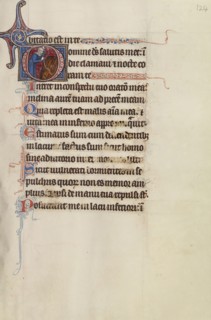 omine ds salutis mee: in
die clamavi: et nocte co
ram te
Intret in conspectu tuo oratio mea:
inclina aurem tuam ad precem meam
Quia repleta est malis anima mea:
vita mea in inferno appropinquavit
Estimatus sum cum descendentibus
in lacum: factus sum sicut homo
sine adiutorio inter mortuos
Sicut vulnerati dormientes in se
pulchris quorum non es memor am
plius: et ipsi de manu tua repulsi sunt
Posuerunt me in lacu inferiori: in